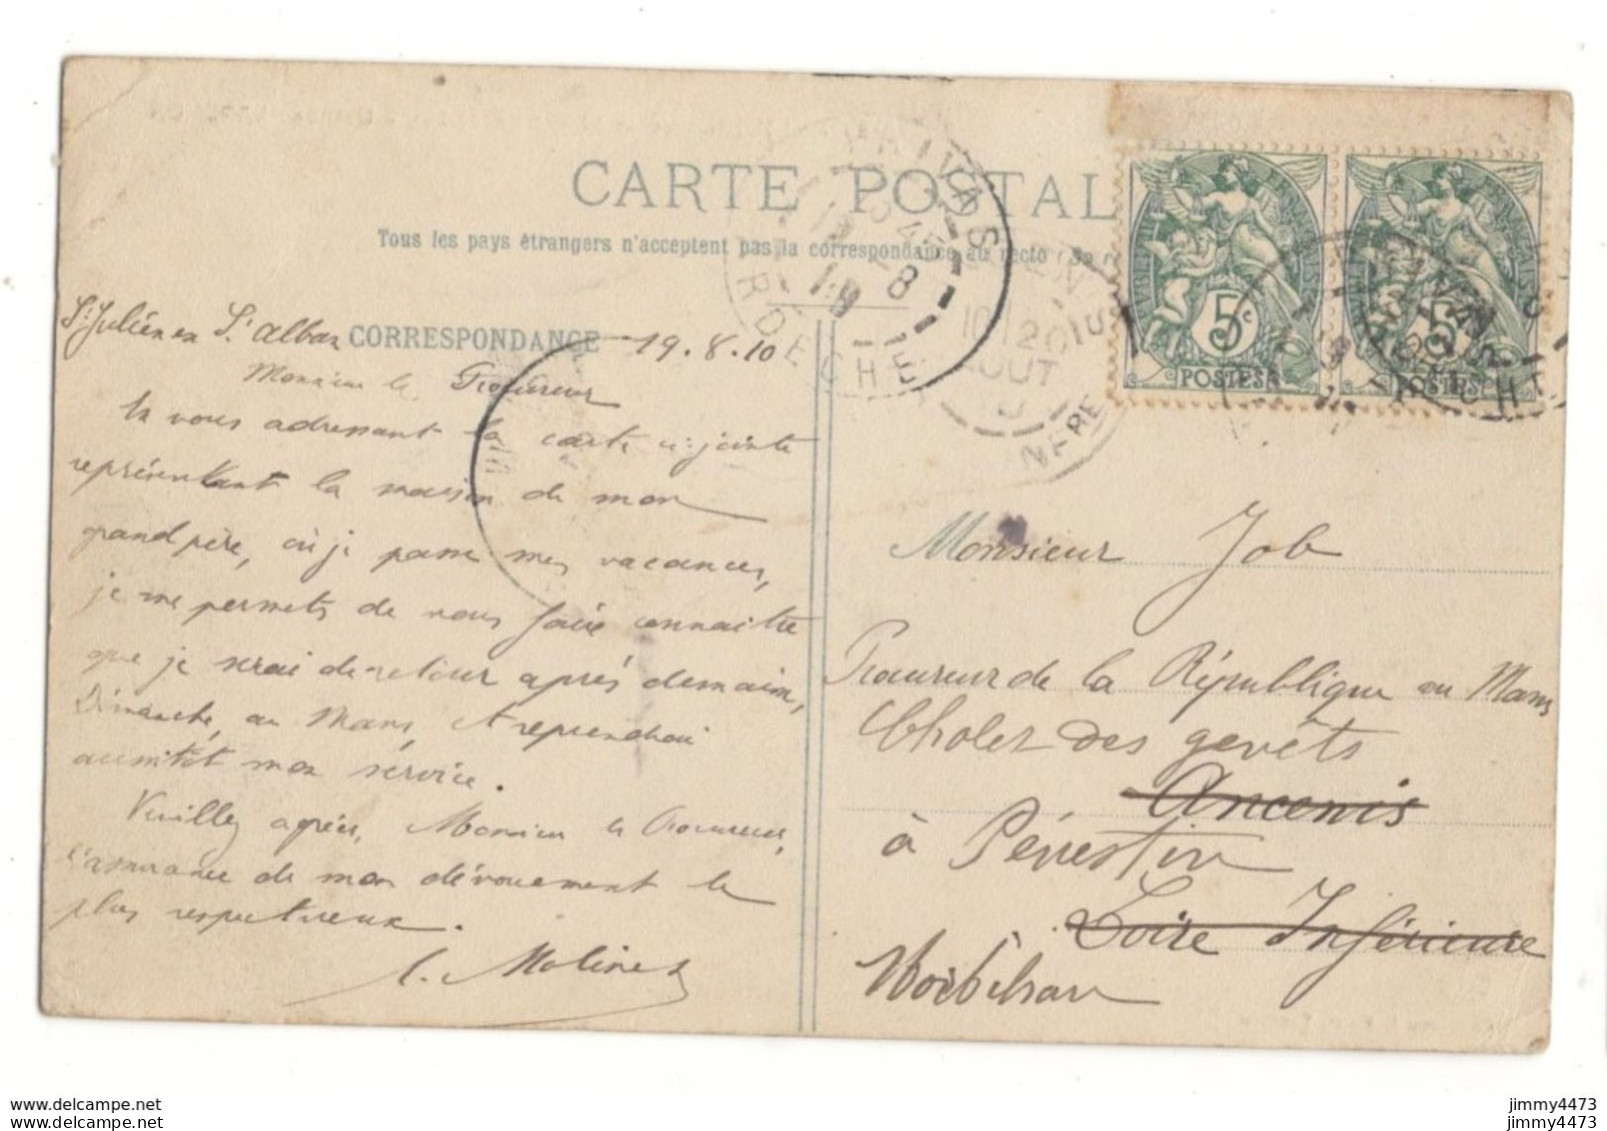 CARTE POSTAL
Tous les pays étrangers n'acceptent pas la correspondance au recto (Se r
CORRESPONDANCE
St Julien en St Alban 19.8.10
Monsieur le Procureur
En vous adressant la carte ci-jointe
représentant la maison de mon
grand père, où je passe mes vacances,
je me permets de vous faire connaître
que je serai de retour après demain,
Dimanche, au Mans, et reprendrai
aussitôt mon service.
Veuillez agréer, Monsieur le Procureur,
l'assurance de mon dévouement le
plus respectueux.
Molines
PRIVAS
ARDECHE
10 20
AOUT
10
5c
POSTES
5c
POSTES
PRIVAS
Monsieur Job
Procureur de la République au Mans
Chalet des genêts
Ancenis
à Pénestin
Loire Inférieure
Morbihan
www.delcampe.net
jimmy4473
www.delcampe.net
jimmy4473